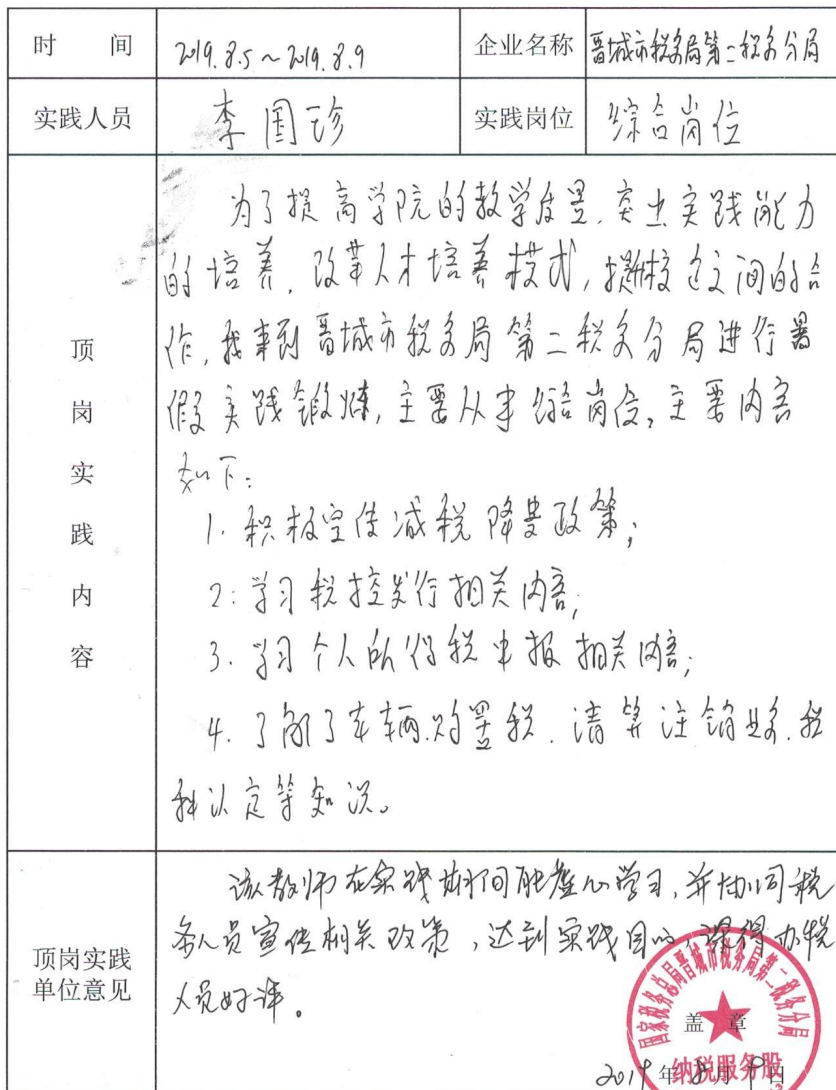 时 间 2019.8.5~2019.8.9 企业名称 晋城市税务局第二税务分局
实践人员 李国珍 实践岗位 综合岗位
顶岗实践内容
为了提高学院的教学质量,突出实践能力
的培养,改革人才培养模式,增强校企之间的合
作,我来到晋城市税务局第二税务分局进行暑
假实践锻炼,主要从事综合岗位,主要内容
如下:
1. 积极宣传减税降费政策;
2: 学习税控发行相关内容;
3. 学习个人所得税申报相关内容;
4. 了解了车辆购置税、清算注销业务、税
种认定等知识。
顶岗实践
单位意见
该教师在实践期间能虚心学习,并协同税
务人员宣传相关政策,达到实践目的,深得办税
人员好评。
国家税务总局晋城市税务局第二税务分局
盖 章
纳税服务股
2019年8月9日